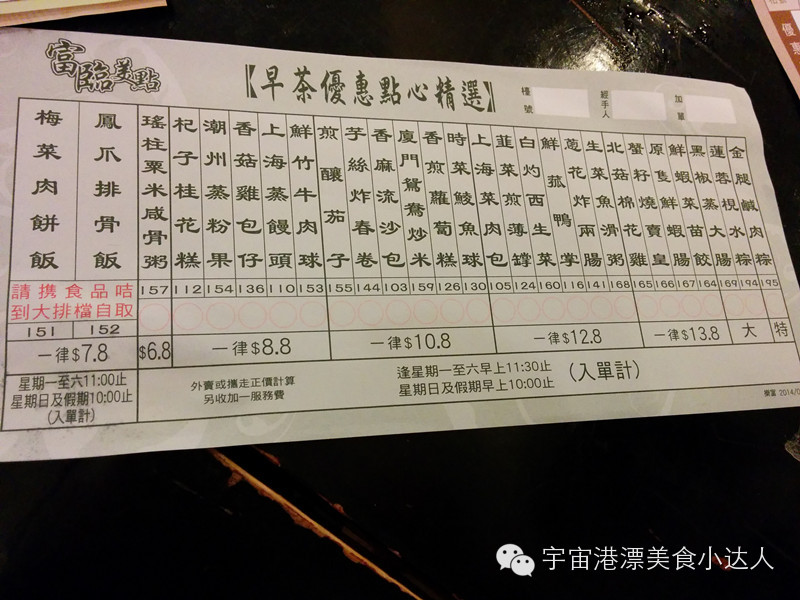 富臨美點
【早茶優惠點心精選】
檯號
經手人
加單
梅菜肉餅飯
鳳爪排骨飯
瑤柱粟米咸骨粥
杞子桂花糕
潮州蒸粉果
香菇雞包仔
上海蒸饅頭
鮮竹牛肉球
煎釀茄子
芋絲炸春卷
香麻流沙包
廈門鴛鴦炒米
香煎蘿蔔糕
時菜鯪魚球
上海菜肉包
韮菜煎薄罉
白灼西生菜
鮮菰鴨掌
蔥花炸兩腸
生菜魚滑腸
北菇棉花雞
蟹籽燒賣皇
原隻鮮蝦腸
鮮蝦菜苗餃
黑椒蒸大腸
蓮蓉梘水粽
金腿鹹肉粽
請携食品咭
到大排檔自取
157 112 154 136 110 153 155 144 103 159 126 130 105 124 160 116 141 168 165 166 167 164 169 194 195
151 152
一律$7.8 $6.8 一律$8.8 一律$10.8 一律$12.8 一律$13.8 大 特
星期一至六11:00止
星期日及假期10:00止
(入單計)
外賣或攜走正價計算
另收加一服務費
逢星期一至六早上11:30止
星期日及假期早上10:00止
(入單計)
宇宙港漂美食小达人